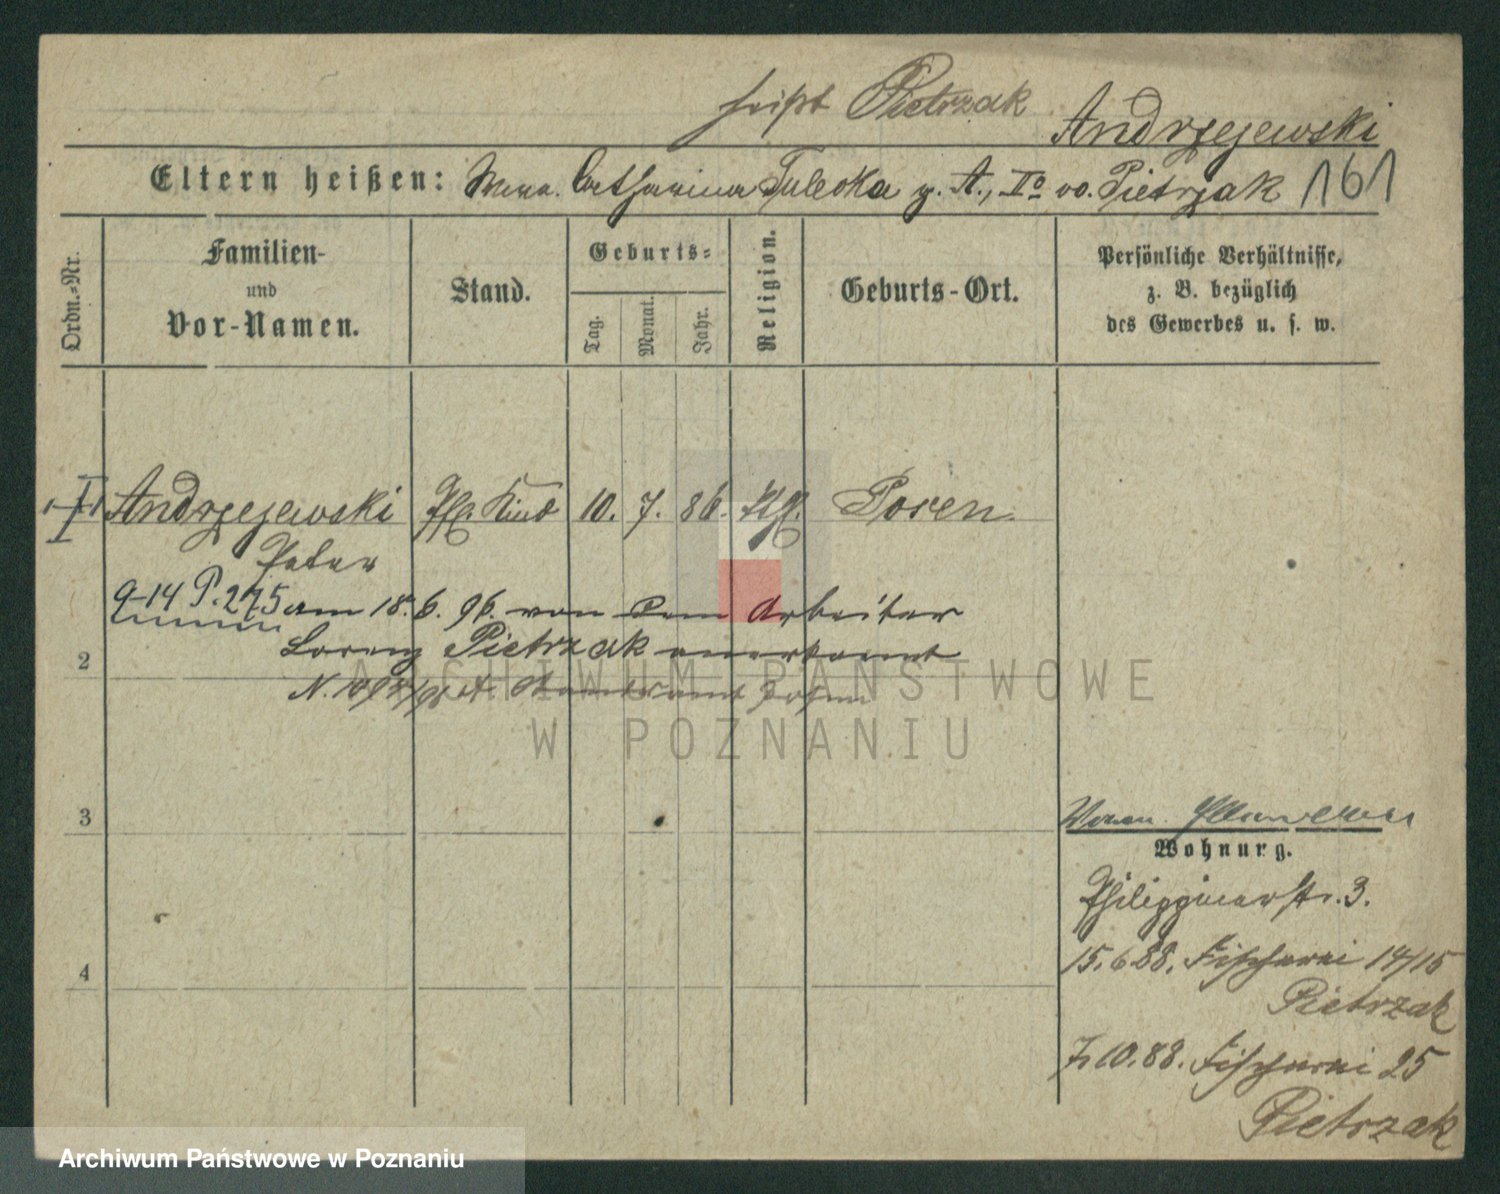 heißt Pietrzak
Andrzejewski
Eltern heißen: Catharina Tulecka g. A., IIº vo. Pietrzak 161
Ordn.-Nr.
Familien-
und
Vor-Namen.
Stand.
Geburts-
Tag.
Monat.
Jahr.
Religion.
Geburts-Ort.
Persönliche Verhältnisse,
z. B. bezüglich
des Gewerbes u. s. w.
Andrzejewski Kind 10. 7. 86. Posen
Peter
9-14 P. 275 am 18. 6. 96. von dem Arbeiter
Lorenz Pietrzak anerkannt
2
Standesamt Posen
ARCHIWUM PAŃSTWOWE
W POZNANIU
3
Wohnung.
Philippinerstr. 3.
15. 6 88. Fischerei 14/15
Pietrzak
4
7. 10. 88. Fischerei 25
Pietrzak
Archiwum Państwowe w Poznaniu